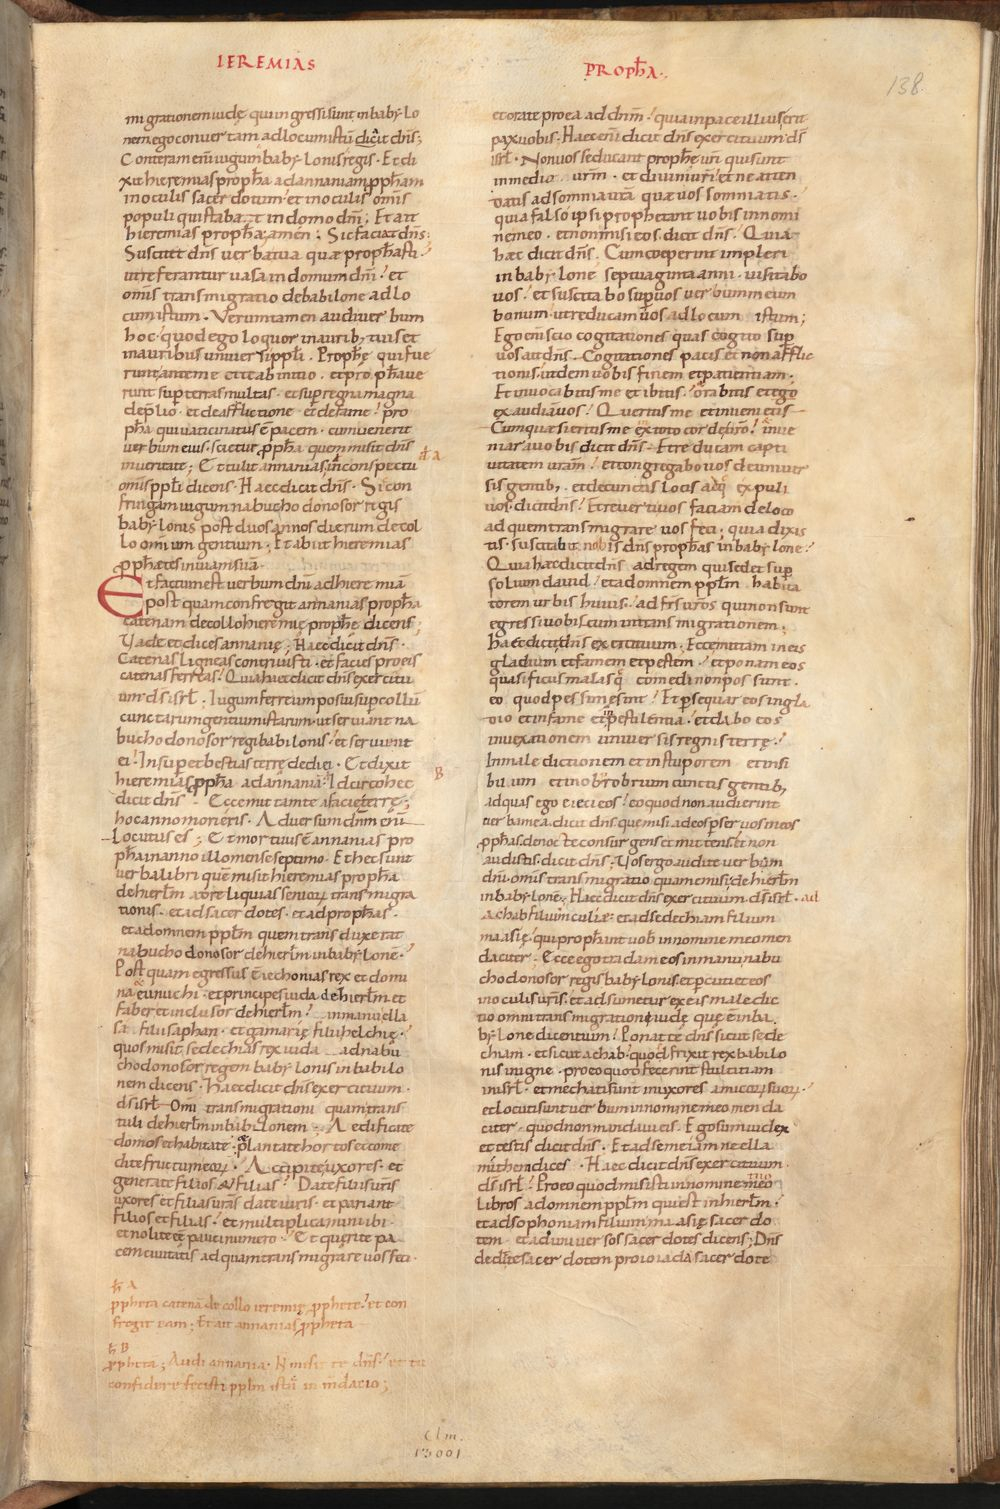 IEREMIAS
PROPħA.
138.
migrationem iudę qui ingressi sunt in babylo
nem. ego convertam ad locum istū dicit dn̄s;
Conteram enī iugum babylonis regis. Et di
xit hieremias propħa ad annaniam ꝓpħam
in oculis sacerdotum et in oculis omīs
populi qui stabat in domo dn̄i; Et ait
hieremias propħa amen; Sic faciat dn̄s;
Suscitet dn̄s verba tua quæ prophasti.
ut referantur vasa in domum dn̄i; et
omīs transmigratio de babilone ad lo
cum istum. Verumtamen audi verbum
hoc quod ego loquor in aurib; tuis et
in auribus universi ppli. Prophę qui fue
runt ante me et te ab initio. et propħave
runt sup terras multas. et sup regna magna
de p̄lio. et de afflictione et de fame; pro
pħa qui vaticinatus ē pacem. cum venerit
verbum eius. scietur ꝓpħa quem misit dn̄s
in veritate; Et tulit annanias in conspectu
omīs ppli dicens. Haec dicit dn̄s. Sic con
fringam iugum nabuchodonosor regis
babylonis post duos annos dierum de col
lo omnium gentium. Et abiit hieremias
ꝓphætes in viam suā.
Et factum est verbum dn̄i ad hieremiā
postquam confregit annanias propħa
catenam de collo hieremię prophę dicens;
Vade et dices annanię; Haec dicit dn̄s.
Catenas ligneas contrivisti. et facies pro eis
catenas ferreas; Quia hæc dicit dn̄s exercitu
um ds isrl. Iugum ferreum posui sup collū
cunctarum gentium istarum. ut serviant na
buchodonosor regi babilonis; et servient
ei. Insup et bestias terrę dedi ei. Et dixit
hieremias ꝓpħa ad annaniā. Idcirco hec
dicit dn̄s Ecce mittam te a facie terrę;
hoc anno morieris. Adversum dn̄m enī
Locutus es; Et mortuus ē annanias pro
pħa in anno illo mense septimo. Et hec sunt
verba libri quē misit hieremias propħa
de hierlm̄ ad reliquias senioꝝ transmigra
tionis. et ad sacerdotes. et ad prophas.
et ad omnem pplm̄ quem transduxerat
nabuchodonosor de hierlm̄ in babylonē.
Postquam egressus ē iechonias rex et domi
na. et eunuchi. et principes iuda de hierlm̄. et
faber et inclusor de hierlm̄. in manu ella
sa filii saphan. et gamarię filii helchię.
quos misit sedechias rex iuda ad nabu
chodonosor regem babylonis in babilo
nem dicens. Haec dicit dn̄s exercituum.
ds isrl. Omī transmigrationi quam trans
tuli de hierlm̄ in babilonem; Aedificate
domos et habitate. plantate hortos et come
dite fructum eoꝝ. Accipite uxores. et
generate filios et filias; Date filiis vr̄is
uxores et filias vrās date viris. et pariant
filios et filias; et multiplicamini ibi.
et nolite ēē pauci numero. Et quęrite pa
cem civitatis ad quam transmigrare vos feci.
et orate pro ea ad dn̄m; quia in pace illius erit
pax vobis. Haec enī dicit dn̄s exercituum ds
isrl. Non vos seducant prophę vr̄i qui sunt
in medio vr̄m. et divini vr̄i et ne atten
datis ad somnia vrā quæ vos somniatis.
quia falso ipsi prophetant vobis in nomi
ne meo. et non misi eos. dicit dn̄s. Quia
hæc dicit dn̄s. Cum coeperint impleri
in babylone septuaginta anni. visitabo
vos; et suscitabo super vos verbum meum
bonum ut reducam vos ad locum istum;
Ego enī scio cogitationes quas cogito sup
vos ait dn̄s. Cogitationes pacis et non afflic
tionis. ut dem vobis finem et patientiam.
Et invocabitis me et ibitis; orabitis et ego
exaudiā vos; Quęritis me et invenietis
Cum quæsieritis me ex toto corde vr̄o; inve
niar a vobis dicit dn̄s. Et reducam capti
vitatem vrām; et congregabo vos de univer
sis gentib; et de cunctis locis ad q̄ expuli
vos. dicit dn̄s; Et reverti vos faciam de loco
ad quem transmigrare vos feci; quia dixis
tis. suscitabit nobis dn̄s prophas in babylone;
Quia hæc dicit dn̄s ad regem qui sedet sup
solium david; et ad omnem pplm̄ habita
torem urbis huius; ad frs̄ vr̄os qui non sunt
egressi vobiscum in transmigrationem;
hæc dicit dn̄s exercituum. Ecce mittam in eis
gladium et famem et pestem; et ponam eos
quasi ficus malas q̄ comedi non poss̄unt.
eo quod pessime sint; Et psequar eos in gla
dio et in fame et in pestilentia. et dabo eos
in vexationem universis regnis terrę;
In maledictionem et in stuporem et in si
bilum et in obrobrium cunctis gentib;
ad quas ego eieci eos; eo quod non audierint
verba mea. dicit dn̄s. que misi ad eos per servos meos
ꝓphas. de nocte consurgens et mittens. et non
audistis. dicit dn̄s; Vos ergo audite verbum
dn̄i. omīs transmigratio quam emisi de hierlm̄
in babylonē; Haec dicit dn̄s exercituum. ds isrl. ad
Achab filium culie. et ad sedechiam filium
maasię; qui prophant vob in nomine meo men
daciter; Ecce ego tradam eos in manu nabu
chodonosor regis babylonis. et pcutiet eos
in oculis vr̄is. et adsumetur ex eis maledic
tio omni transmigrationi iudę quę ē in ba
bylone dicentium; Ponat te dn̄s sicut sede
chiam. et sicut achab. quos frixit rex babilo
nis in igne. pro eo quod fecerint stultitiam
in isrl. et mechati sunt in uxores amicoꝝ suoꝝ.
et locuti sunt verbum in nomine meo menda
citer. quod non mandavi eis. Ego sum iudex
et testis dicit dn̄s. Et ad semeiam neela
mithen dices. Haec dicit dn̄s exercituum
ds isrl; Pro eo quod misisti in nomine meo
libros ad omnem pplm̄ qui est in hierlm̄.
et ad sophoniam filium maasię sacerdo
tem et ad universos sacerdotes dicens; Dn̄s
dedit te sacerdotem pro ioiada sacerdote
ħ A
B
ħ A
ꝓpheta catenā de collo ieremię ꝓphete; et con
fregit eam; Et ait annanias ꝓpheta
ħ B
ꝓphetā; Audi annania. N misit te dn̄s; et tu
confidere fecisti pplm̄ istū in mdacio;
Clm.
13001